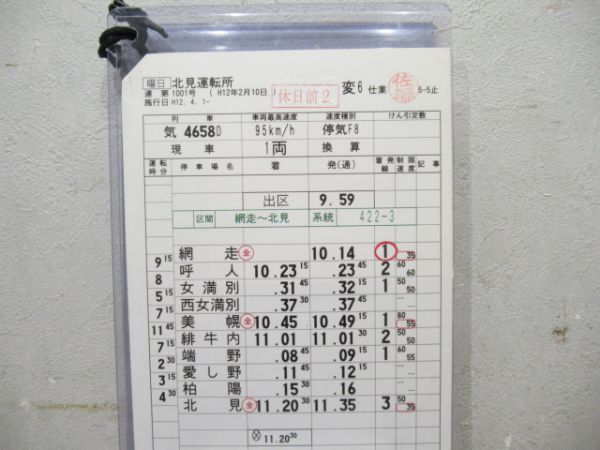 曜日 北見運転所
運 第 1001号 ( H12年2月10日 ) 休日前2 変6 仕業 佐 5-5止
施行日 H12. 4. 1-
列 車 車両最高速度 速度種別 けん引定数
気 4658D 95km/h 停気F8
現 車 1両 換 算
運転時分 停車場名 着 発(通) 着発線 制限速度 記事
出区 9.59
区間 網走〜北見 系統 422-3
網 走 全 10.14 1 35
9 15 呼 人 10.23 15 .23 45 2 60 60
8 女満別 .31 45 .32 15 1 50 50
5 15 西女満別 .37 30 .37 45
7 15 美 幌 全 10.45 10.49 15 1 80 55
11 45 緋牛内 11.01 11.01 30 2 50 50
7 15 端 野 .08 45 .09 15 1 60 55
2 30 愛し野 .11 45 .12 15
3 15 柏 陽 .15 30 .16
4 30 北 見 全 11.20 30 11.35 3 50 35
11.20 30